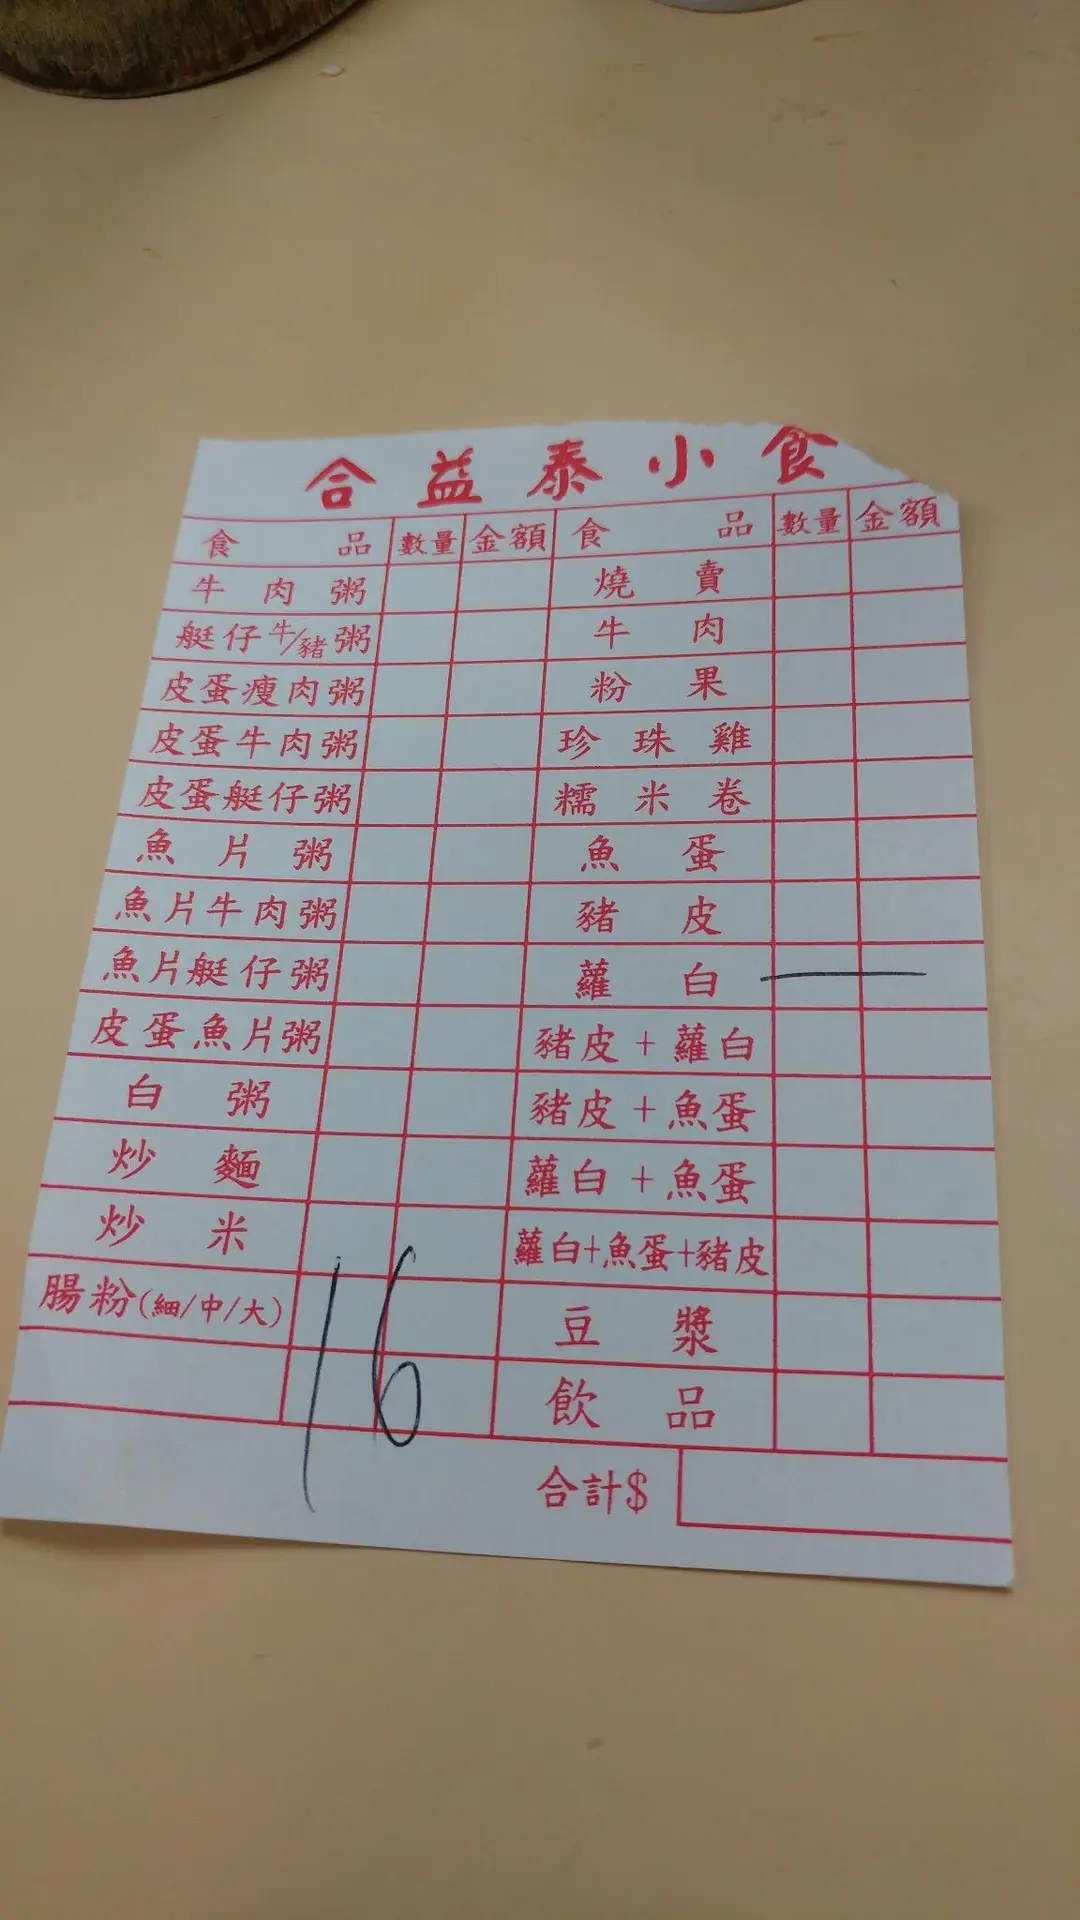 合益泰小食
食品 數量 金額 食品 數量 金額
牛肉粥 燒賣
艇仔牛/豬粥 牛肉
皮蛋瘦肉粥 粉果
皮蛋牛肉粥 珍珠雞
皮蛋艇仔粥 糯米卷
魚片粥 魚蛋
魚片牛肉粥 豬皮
魚片艇仔粥 蘿白 一
皮蛋魚片粥 豬皮+蘿白
白粥 豬皮+魚蛋
炒麵 蘿白+魚蛋
炒米 蘿白+魚蛋+豬皮
腸粉(細/中/大) 豆漿
16 飲品
合計$